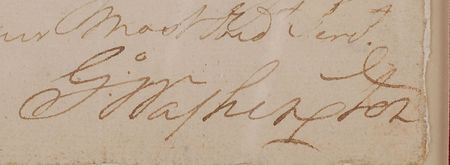 ur Most Obed Servt.
Go: Washington